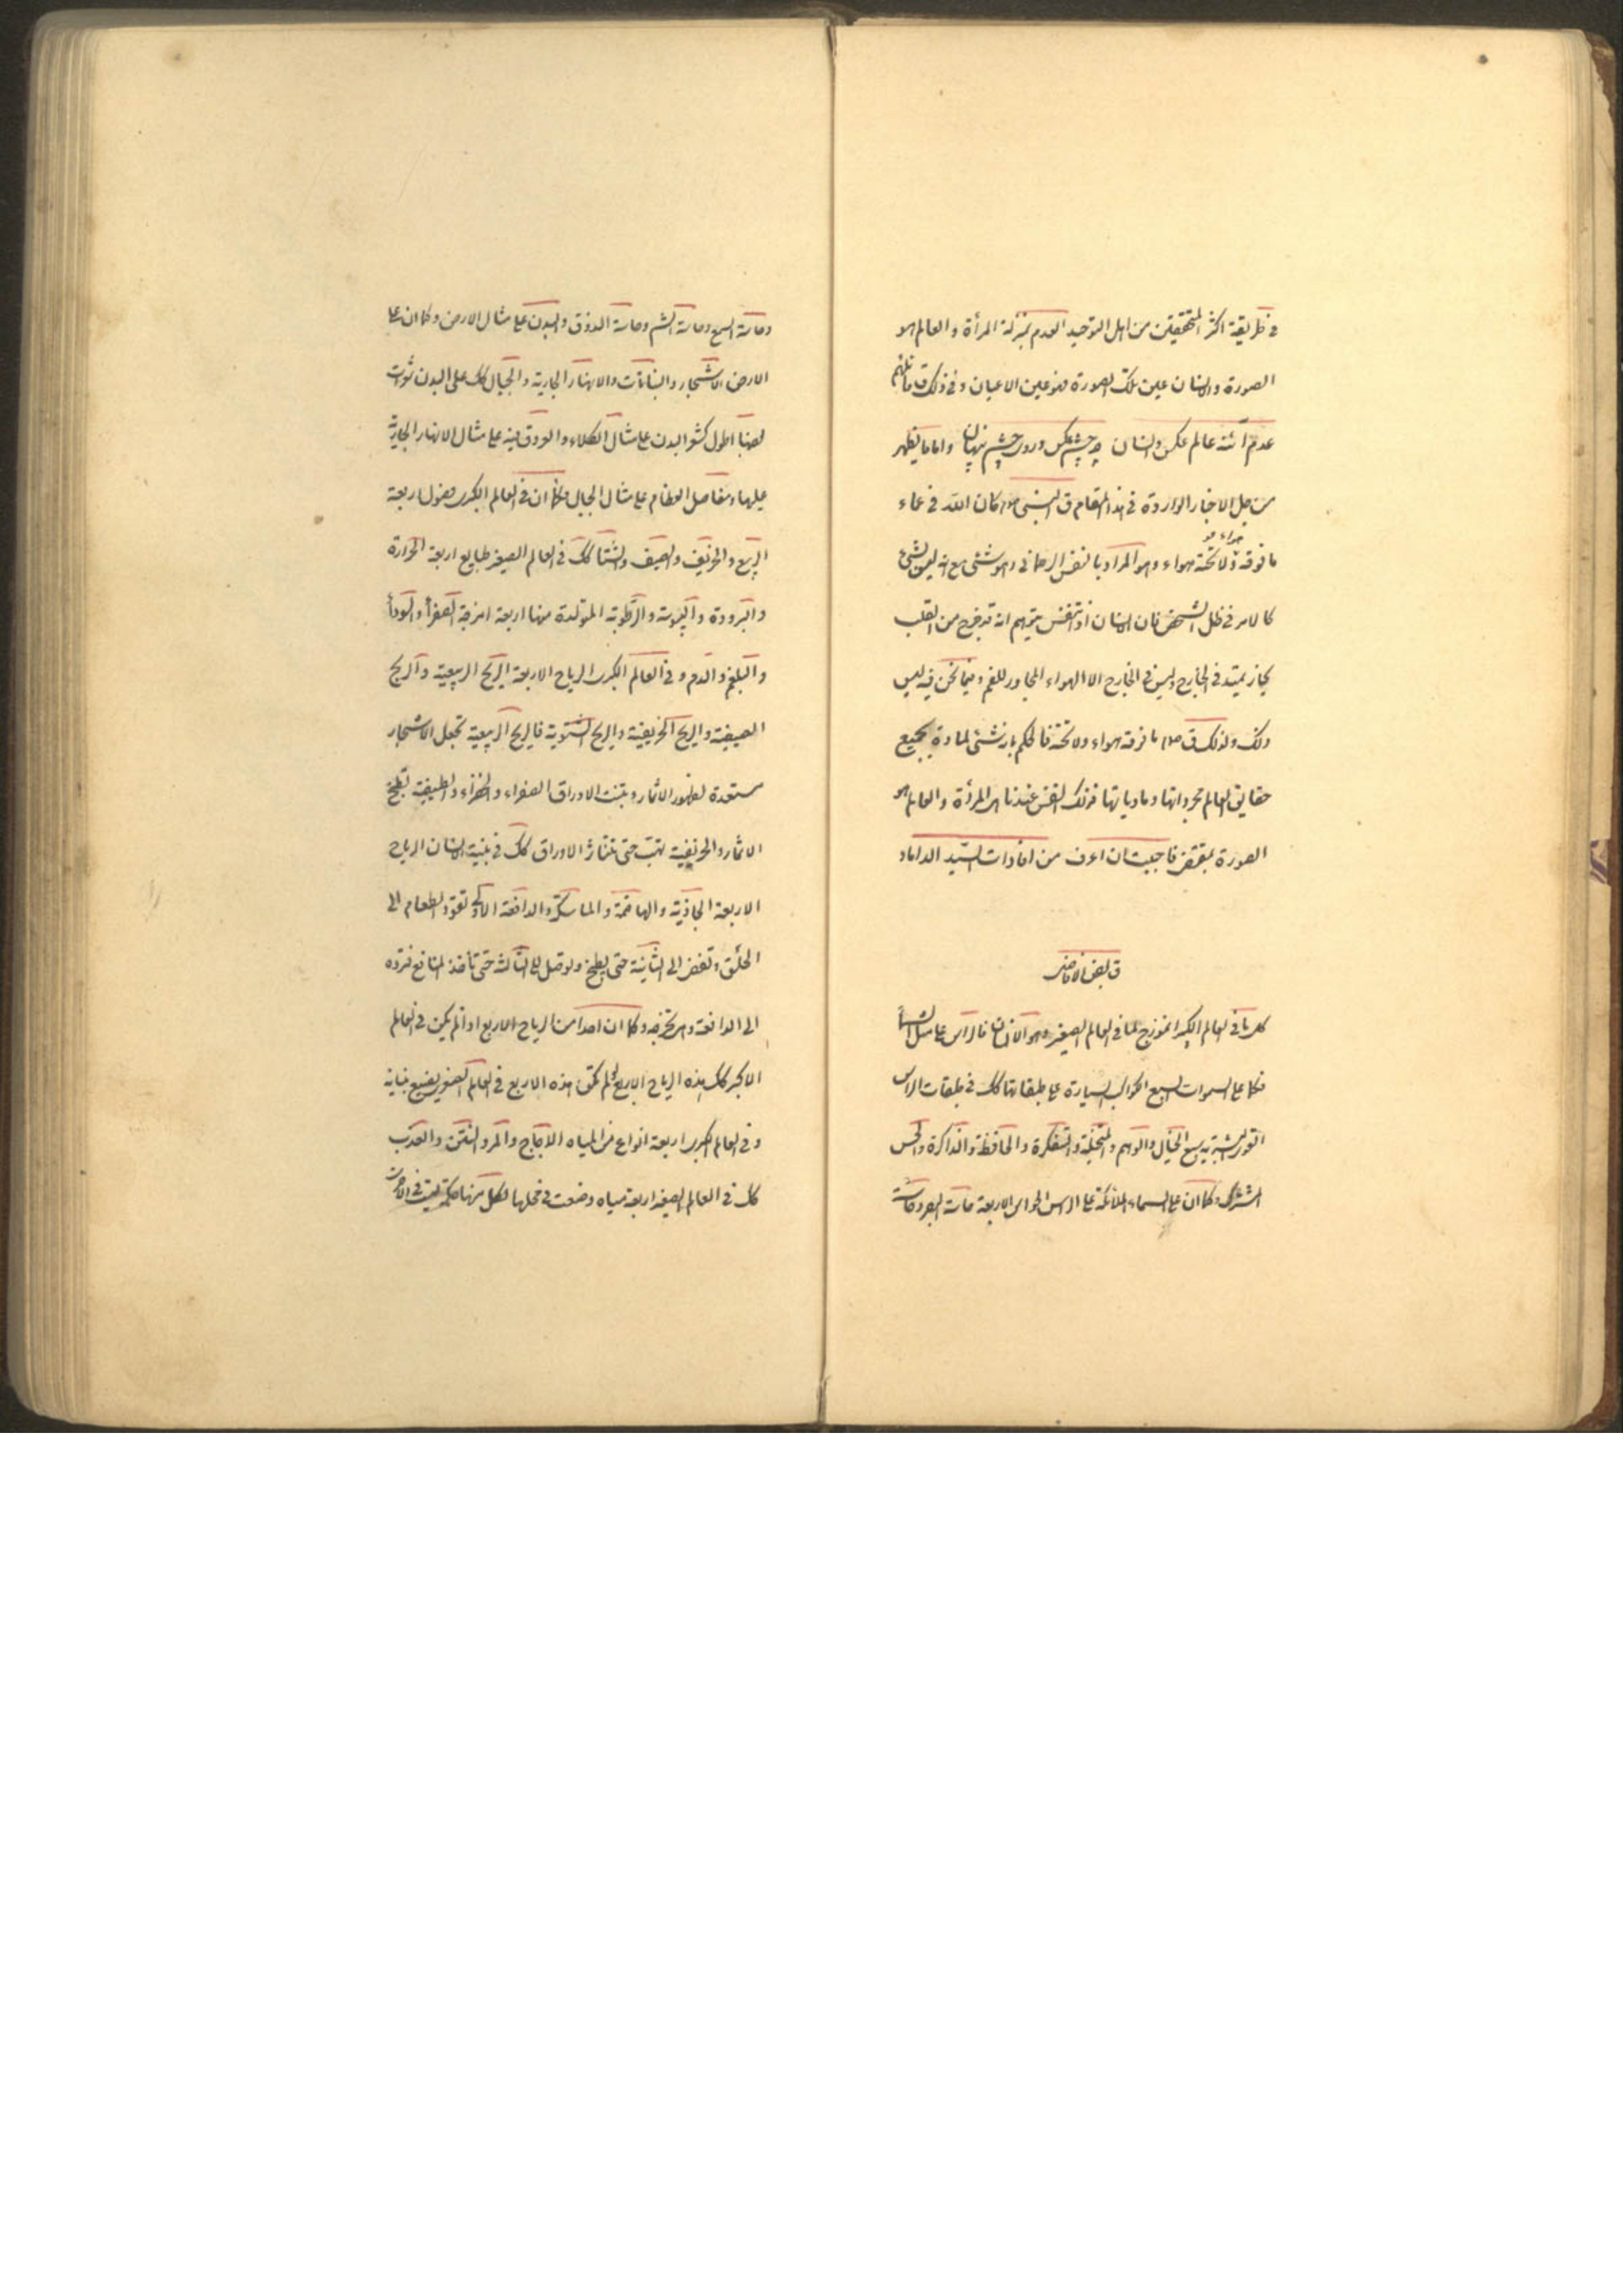 في طريقة اكثر المتحققين من اهل التوحيد العدم بمنزلة المرأة والعالم هو
الصورة والانسان عين تلك الصورة فهو عين الاعيان وفي ذلك ق قائلهم
عدم آئنه عالم عكس وانسان چو چشم عكس در وى چشم پنهان واما ما يظهر
من جل الاخبار الواردة في هذا المقام ق النبى صلى كان الله في عماء
ما فوقه هواء ولا تحته هواء وهو المراد بالنفس الرحمانى وهو شئى مع انه ليس بشئ
كالامر في ظل الشخص فان الانسان اذا تنفس يتوهم انه قد خرج من القلب
بخار يمتد في الخارج وليس في الخارج الا الهواء المجاور للفم وفيما نحن فيه ليس
ذلك ولذلك ق صلى ما فوقه هواء ولا تحته فالحكم بانه شئى لمادة بجميع
حقايق العالم مجرداتها ومادياتها فذلك النفس عندنا هى المرأة والعالم هو
الصورة بمقتضى فاحببت ان اعرف من افادات السيد الداماد
ق بعض الافاضل
كل ما في العالم الكبير انموذج لما في العالم الصغير وهو الانسان فالراس على مثال السماء
فكما على السموات السبع الكواكب السيارة على طبقاتها كك في طبقات الراس
القوى البشرية سبع الخيال والوهم والمتخيلة والمتفكرة والحافظة والذاكرة والحس
المشترك وكما ان على السماء الملائكة على الراس الحواس الاربعة حاسة البصر وحاسة
وحاسة السمع وحاسة الشم وحاسة الذوق والبدن على مثال الارض وكما ان على
الارض الاشجار والنباتات والانهار الجارية والجبال كك على البدن شعرات
بعضها اطول كشعر البدن على مثال الكلاء والعروق فيه على مثال الانهار الجارية
عليها ومفاصل العظام على مثال الجبال وكما ان في العالم الكبرى فصول اربعة
الربيع والخريف والصيف والشتا كك في العالم الصغير طبايع اربعة الحرارة
والبرودة واليبوسة والرطوبة المتولدة منها اربعة امزجة الصفرأ والسودأ
والبلغم والدم وفي العالم الكبرى الرياح الاربعة الريح الربيعية والريح
الصيفية والريح الخريفية والريح الشتوية فالريح الربيعية تجعل الاشجار
مستعدة لظهور الاثمار وبتنبت الاوراق الصفراء والخضراء والصيفية تطبخ
الاثمار والخريفية تهب حتى تتناثر الاوراق كك في بنية الانسان الرياح
الاربعة الجاذبة والهاضمة والماسكة والدافعة الاولى تقود الطعام الى
الحلق وتفضى الى الثانية حتى يطبخ وتوصل الى الثالثة حتى تأخذ المنافع فترده
الى الدافعة وهى تخرجه وكما ان احدا من الرياح الاربع اذا لم يكن في العالم
الاكبر كك هذه الرياح الاربع لو لم تكن هذه الاربع في العالم الصغير يضيع بنيانه
وفي العالم الكبرى اربعة انواع من المياه الاجاج والمر والنتن والعذب
كك في العالم الصغير اربعة مياه وضعت في محلها لكل منها حكمة